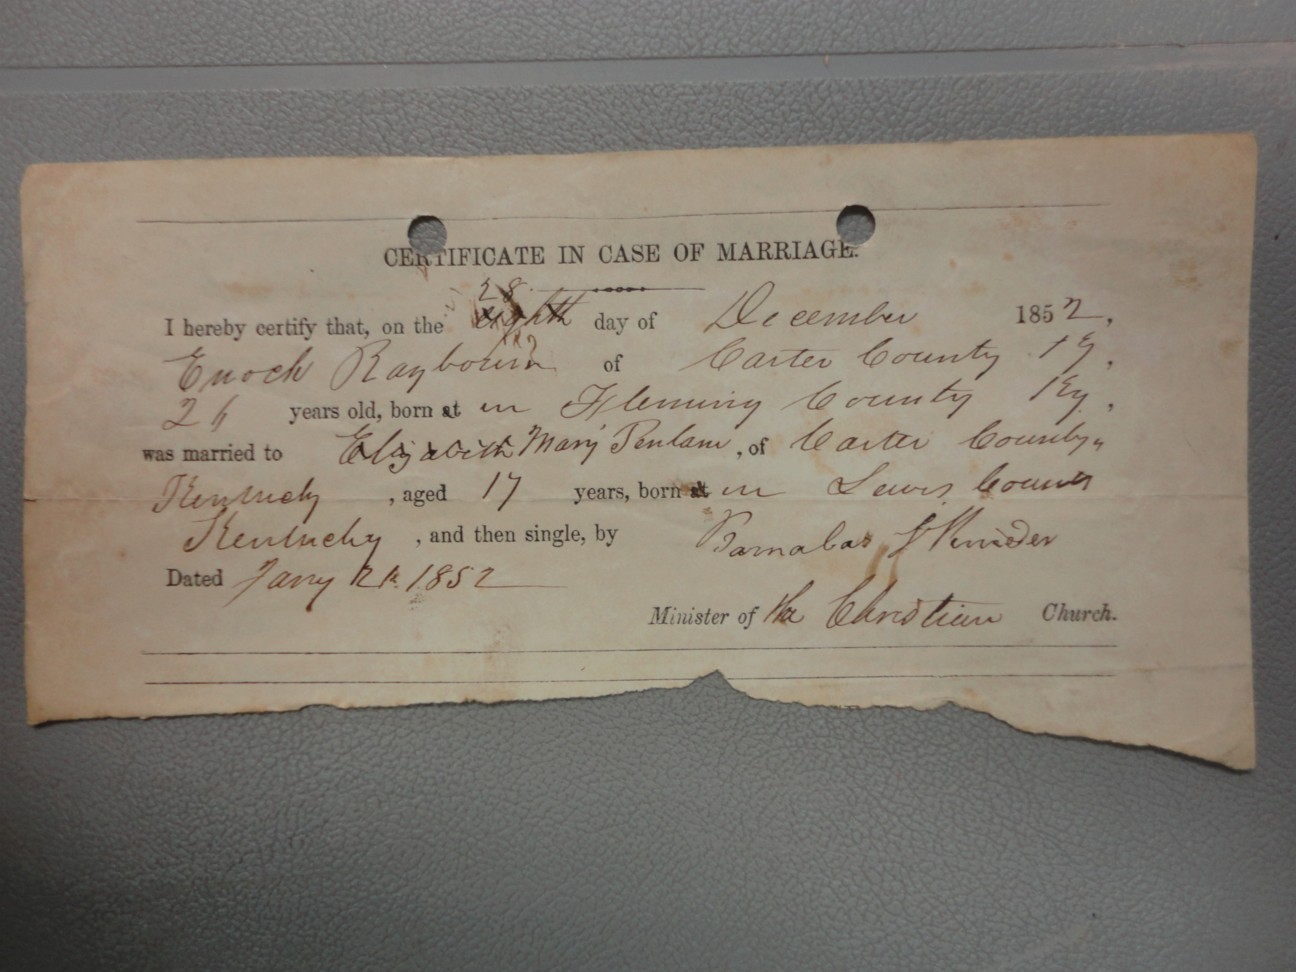 CERTIFICATE IN CASE OF MARRIAGE.
28
I hereby certify that, on the eighth day of December 1852,
Enoch Raybourn of Carter County Ky,
26 years old, born at in Fleming County Ky,
was married to Elizabeth Mary Penlam, of Carter County,
Kentucky, aged 17 years, born at in Lewis County
Kentucky, and then single, by Barnabas
Dated Jany 1852
Minister of the Christian Church.